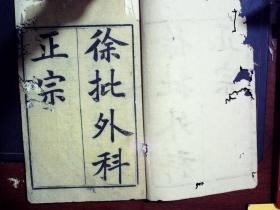 徐批外科
正宗